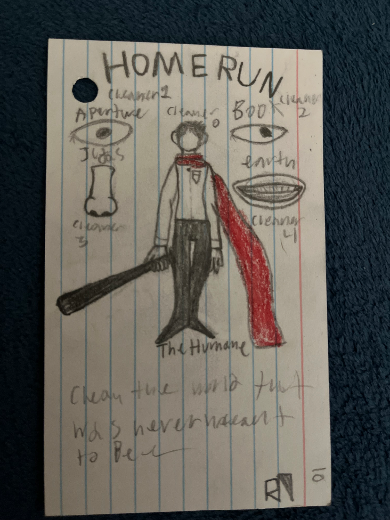 HOME RUN
Cleaner 1
Aperture
Cleaner 0
Book
Cleaner 2
Judas
earth
Cleaner 3
Cleaner 4
The Humane
Clean the world that
was never meant
to Be